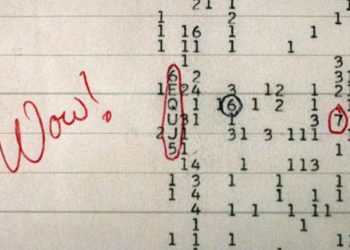 2 1 1
1 2
1 16 1 1
1 11 1 1
1 3
6 2 3
1 E 24 3 12 1 21
Wow! Q 1 16 1 2 1 1
U 31 1 3 7
2 J 1 31 3 111 1
5 1 1 3
14 1 113
1 3 1 1
4 1 1 1
4 1 1 1 11
1 1
1 1 1 1